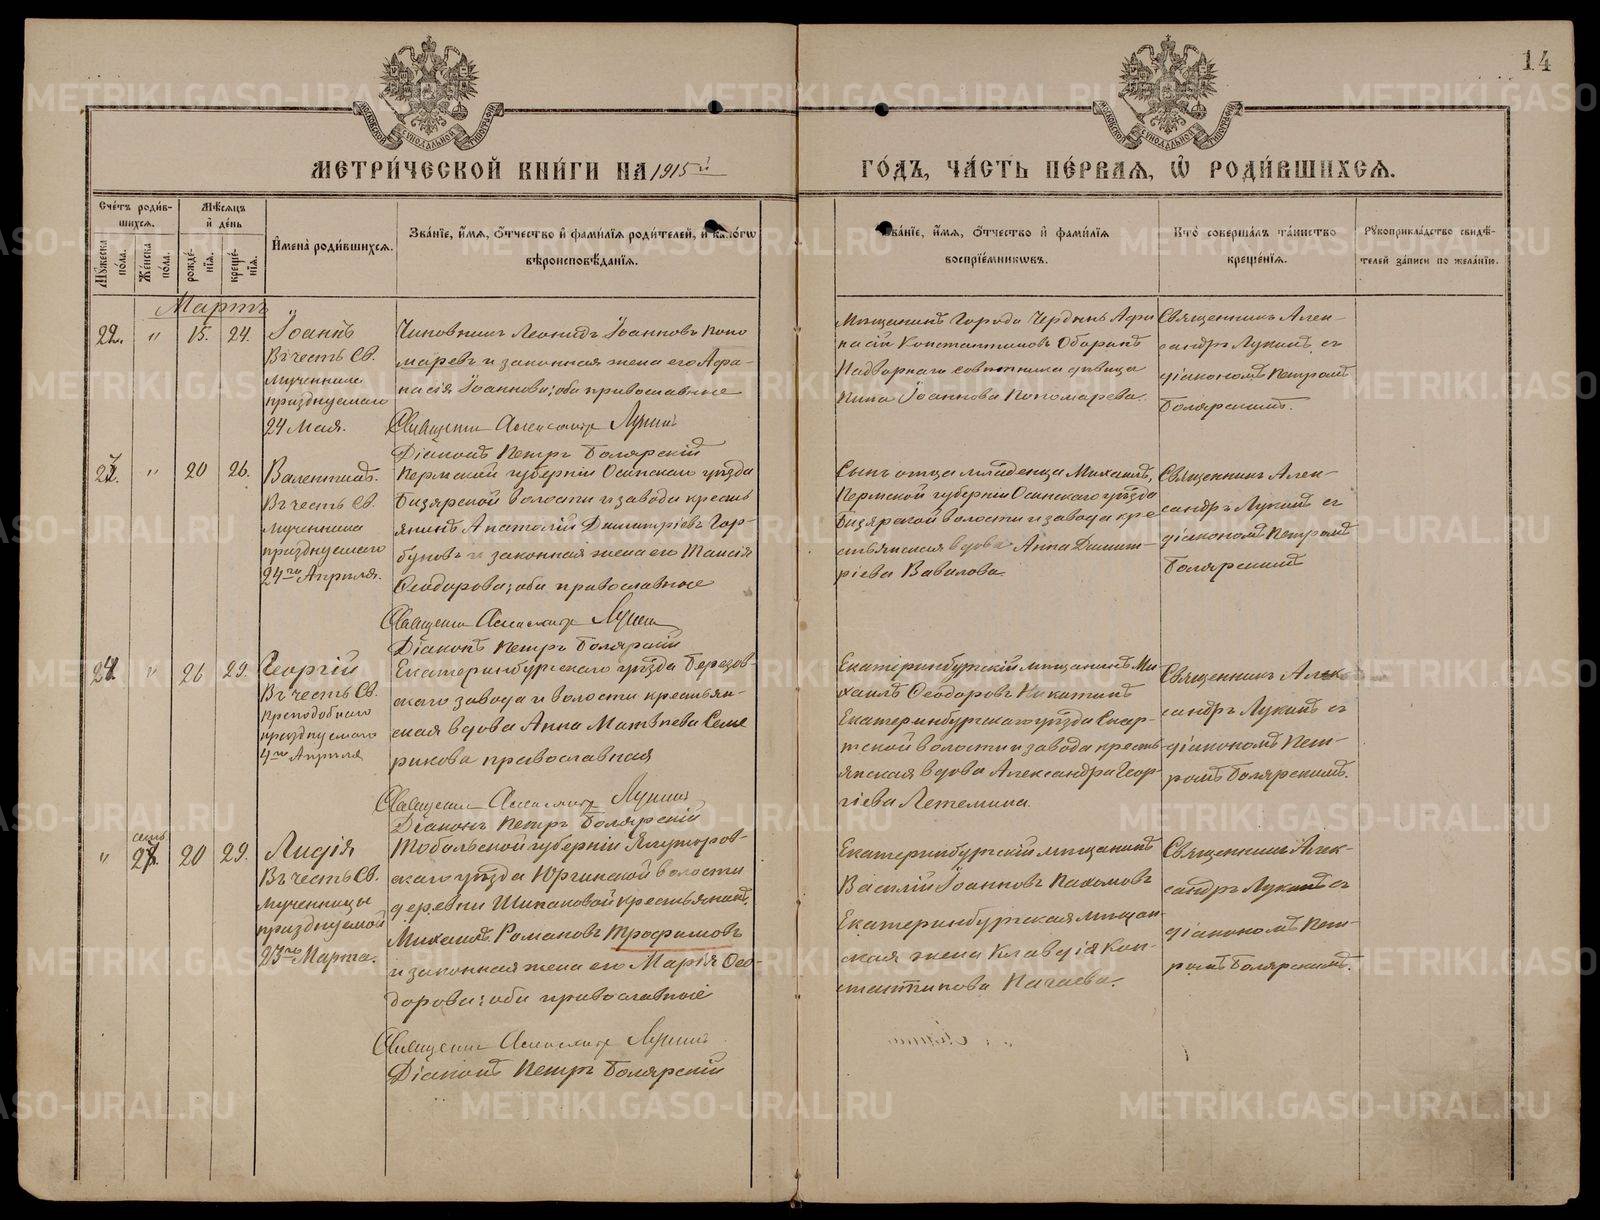 14
МЕТРИ́ЧЕСКОЙ КНИ́ГИ НА 1915й
ГО́ДЪ, ЧА́СТЬ ПЕ́РВАЯ, Ѽ РОДИ́ВШИХСЯ.
Сче́тъ роди́в-
шихся.
Му́жеска по́ла.
Же́нска по́ла.
Мѣ́сяцъ
и҆ де́нь
рожде́-
нїя.
креще́-
нїя.
И҆мена̀ роди́вшихся.
Зва́нїе, и҆́мя, ѻ҆́тчество и҆ фами́лїя роди́телей, и҆ како́гѡ
вѣроисповѣ́данїя.
Зва́нїе, и҆́мя, ѻ҆́тчество и҆ фами́лїя
воспрїе́мниковъ.
Кто̀ соверша́лъ та́инство
креще́нїя.
Рꙋкоприкла́дство свидѣ́-
телей за́писи по жела́нїю.
Мартъ
22. " 15. 24.
Іоаннъ
В честь Св.
мученника
празднуемаго
24 Мая.
Чиновникъ Леонидъ Іоанновъ Поно
маревъ и законная жена его Афа-
насія Іоаннова; оба православные
Священникъ Александръ Лукинъ
Діаконъ Петръ Болярскій
Мѣщанинъ Города Чердынь Афа
насій Константиновъ Оборинъ
Надворнаго совѣтника дѣвица
Нина Іоаннова Пономарева.
Священникъ Алек-
сандръ Лукинъ съ
діакономъ Петромъ
Болярскимъ.
23. " 20 26.
Валентинъ.
Въ честь Св.
мученника
празднуемаго
24го Апрѣля.
Пермской губерніи Осинскаго уѣзда
Бизярской волости и завода кресть
янинъ Анатолій Димитріевъ Гор-
буновъ и законная жена его Таисія
Ѳеодорова; оба православные
Священникъ Александръ Лукинъ
Діаконъ Петръ Болярскій
Сынъ отца младенца Михаилъ,
Пермской губерніи Осинскаго уѣзда
Бизярской волости и завода кре
стьянская вдова Анна Димит-
ріева Вавилова.
Священникъ Алек-
сандръ Лукинъ съ
діакономъ Петромъ
Болярскимъ
24. " 26 29.
Георгій
Въ честь Св.
Преподобнаго
празднуемаго
4го Апрѣля
Екатеринбургскаго уѣзда Березов-
скаго завода и волости крестьян-
ская вдова Анна Матвѣева Семе
рикова православная
Священникъ Александръ Лукинъ
Діаконъ Петръ Болярскій
Екатеринбургскій мѣщанинъ Ми
хаилъ Ѳеодоровъ Никитинъ
Екатеринбургскаго уѣзда
волости и завода кресть-
янская вдова Александра Геор-
гіева Летемина.
Священникъ Алек-
сандръ Лукинъ съ
діакономъ Пет-
ромъ Болярскимъ.
семь
" 27. 20 29.
Лидія
Въ честь Св.
мученницы
празднуемой
23го Марта.
Тобольской губерніи Ялуторов-
скаго уѣзда Юргинской волости
деревни Шипаковой крестьянинъ
Михаилъ Романовъ Трофимовъ
и законная жена его Марія Ѳео-
дорова; оба православные
Священникъ Александръ Лукинъ
Діаконъ Петръ Болярскій
Екатеринбургскій мѣщанинъ
Василій Іоанновъ Пахомовъ
Екатеринбургская мѣщан-
ская жена Клавдія Кон-
стантинова Ничаева.
Священникъ Алек-
сандръ Лукинъ съ
діакономъ Пет-
ромъ Болярскимъ.
METRIKI.GASO-URAL.RU